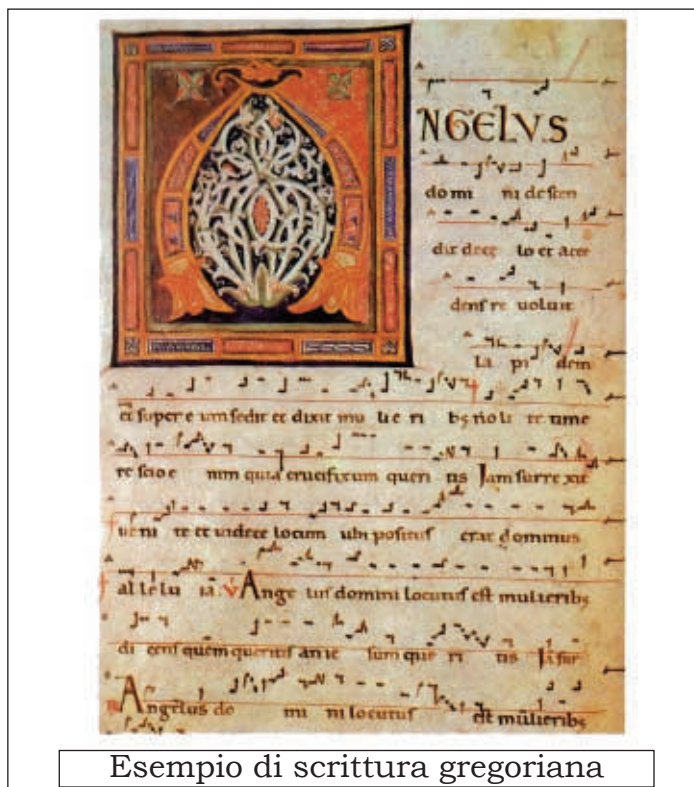 NGELVS
domi ni descen
dit de ce lo et acce
dens re uoluit
la pi dem
et super e um sedit et dixit mu lie ri bꝫ noli te time
re scio e nim quia crucifixum queri tis Jam surre xit
ueni te et uidete locum ubi positus erat dominus
al le lu ia. Ange lus domini locutus est mulieribꝫ
di cens quem queritis an ie sum que ri tis Ja sur
Angelus do mi ni locutus est mulieribꝫ
Esempio di scrittura gregoriana